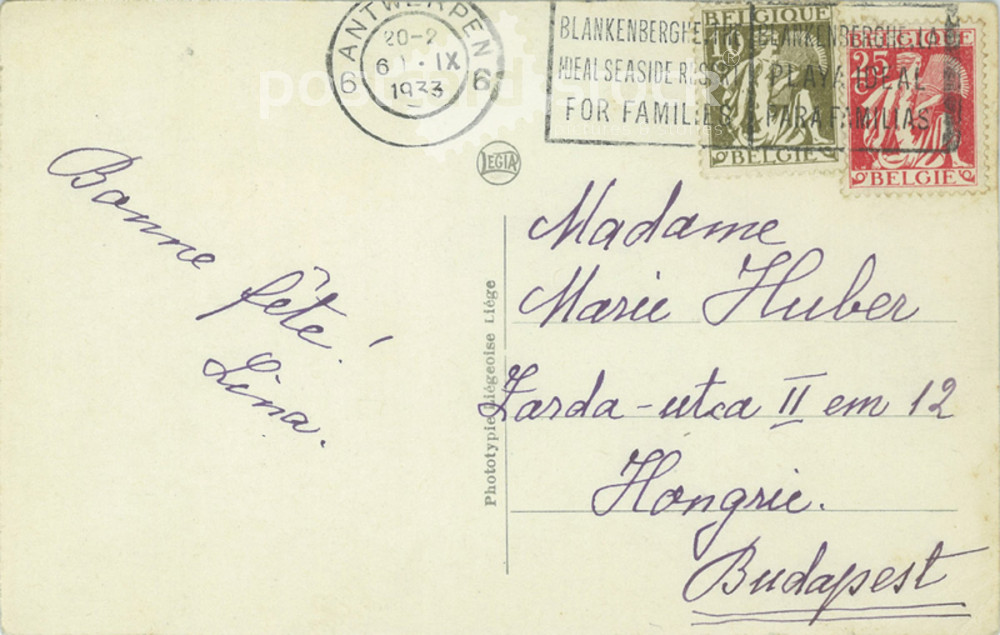 ANTWERPEN
6 6
20-2
6 IX
1933
BLANKENBERGHE THE
IDEAL SEASIDE RESORT
FOR FAMILIES
BLANKENBERGHE LA
PLAYA IDEAL
PARA FAMILIAS
BELGIQUE
10
BELGIE
BELGIQUE
25
BELGIE
LEGIA
Bonne
fête!
Lina.
Phototypie Liégeoise Liége
Madame
Marie Huber
Zarda-utca II em 12
Hongrie.
Budapest